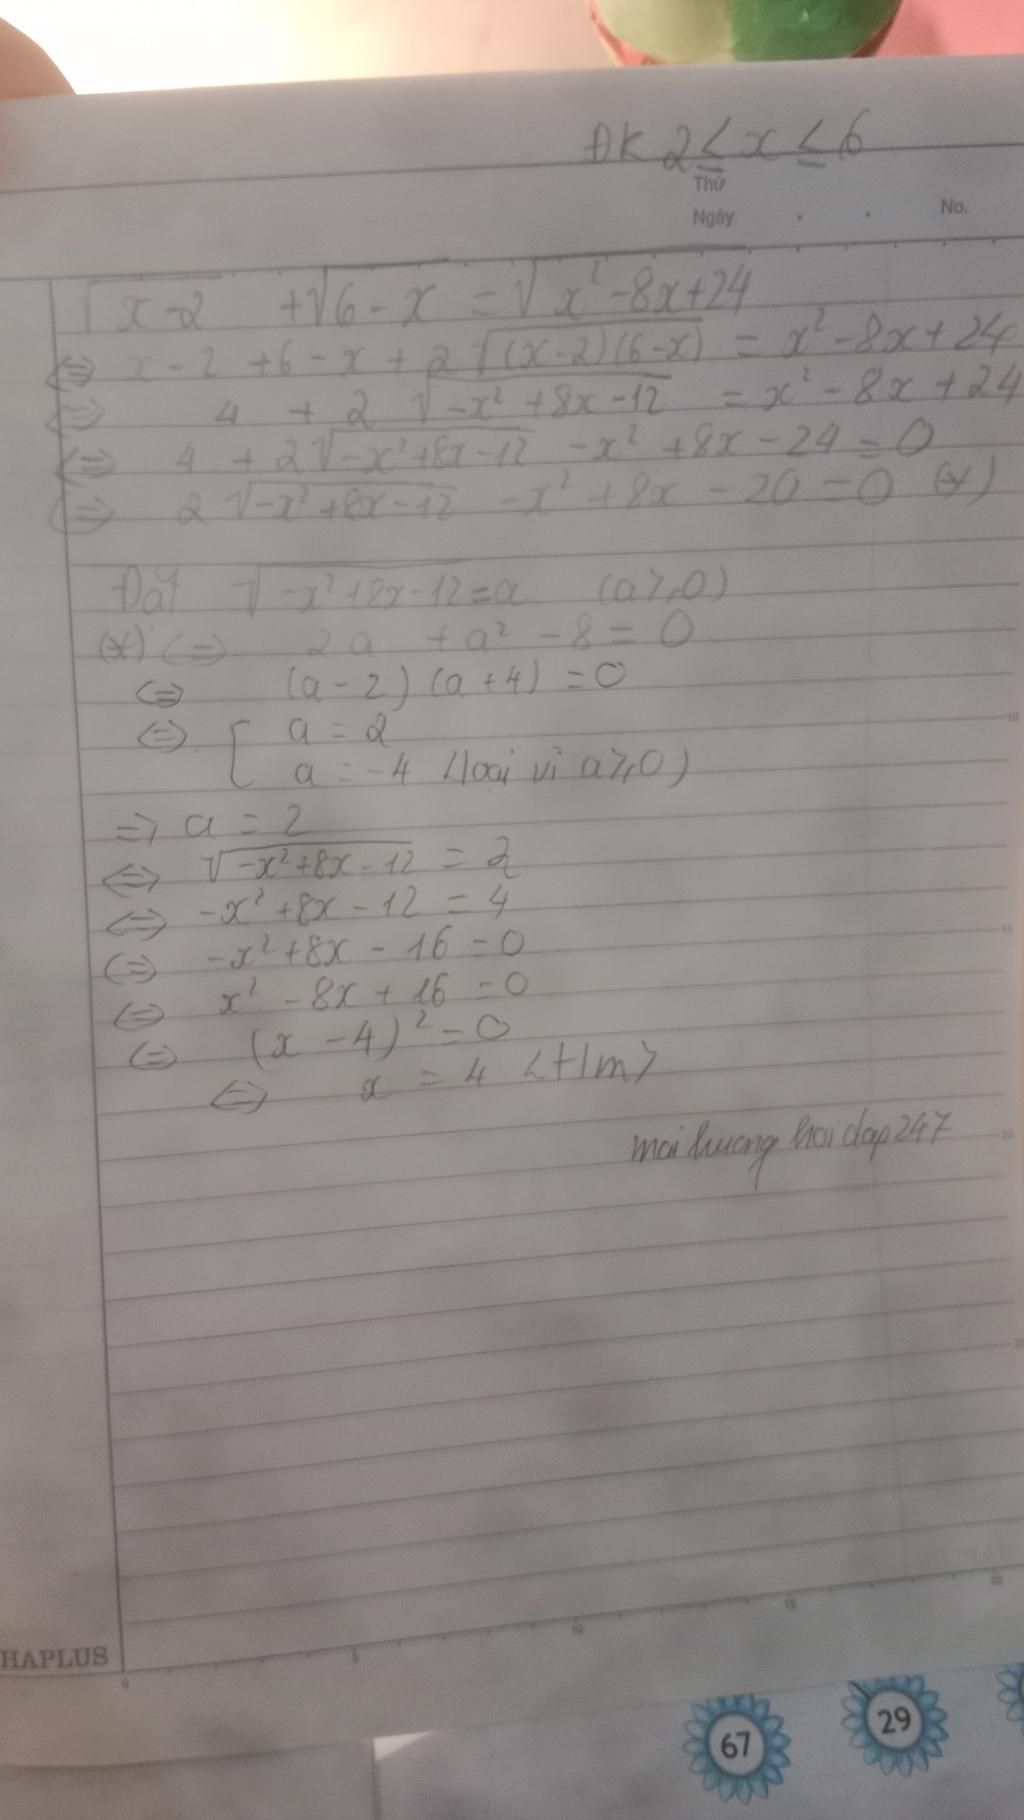 ĐK 2 ≤ x ≤ 6
Thứ
Ngày . . No.
√(x-2) + √(6-x) = √(x²-8x+24)
⇔ x-2+6-x+2√((x-2)(6-x)) = x²-8x+24
⇔ 4 + 2√(-x²+8x-12) = x²-8x+24
⇔ 4 + 2√(-x²+8x-12) -x²+8x-24=0
⇔ 2√(-x²+8x-12) -x²+8x-20=0 (*)
Đặt √(-x²+8x-12)=a (a≥0)
(*) ⇔ 2a + a² - 8 = 0
⇔ (a-2)(a+4)=0
⇔ [ a = 2
a = -4 (loại vì a≥0)
⇒ a = 2
⇔ √(-x²+8x-12) = 2
⇔ -x²+8x-12 = 4
⇔ -x²+8x-16=0
⇔ x²-8x+16=0
⇔ (x-4)²=0
⇔ x = 4 <t/m>
maihuong hoidap247
10
15
20
HAPLUS
0 5 10 15 20
67
29